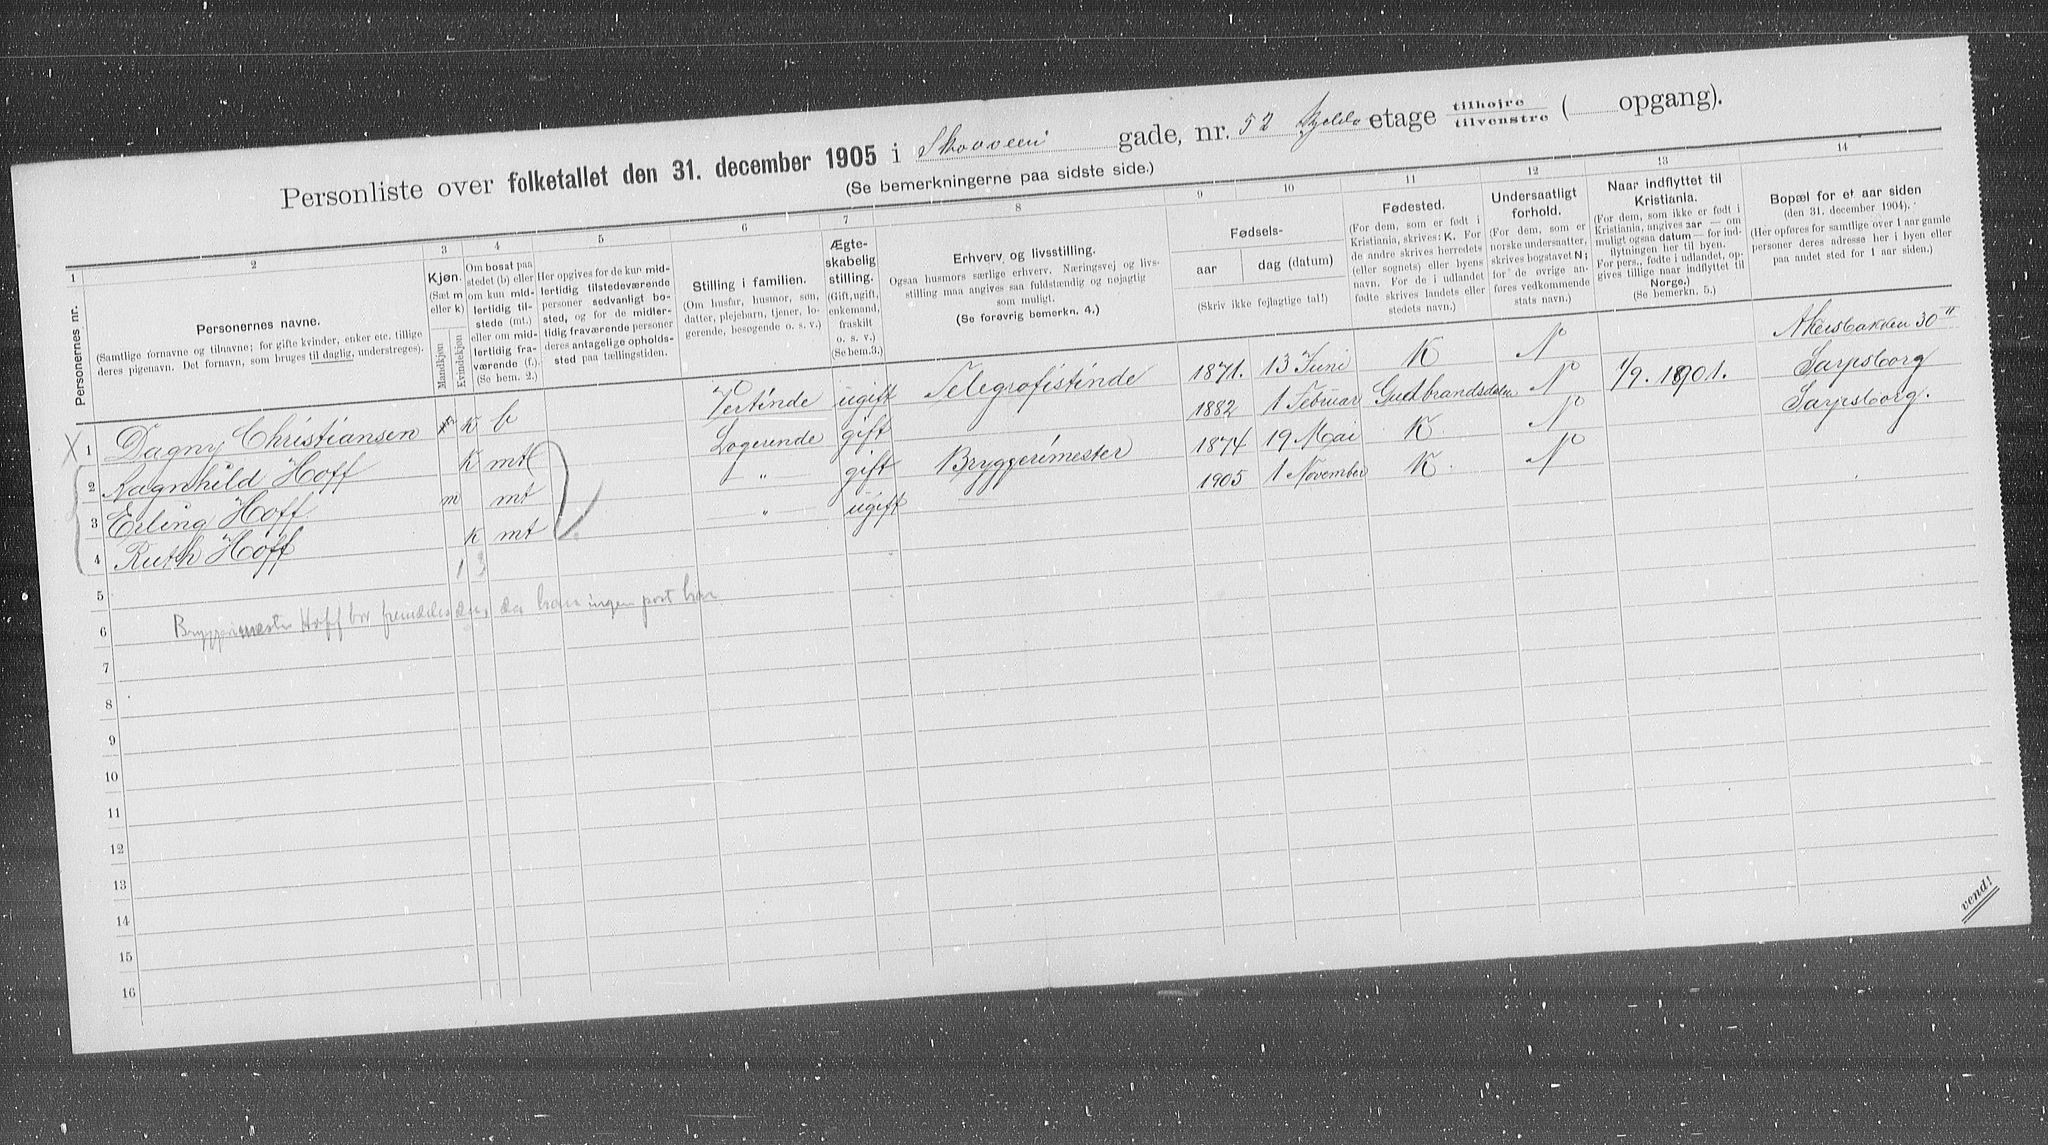 Personliste over folketallet den 31. december 1905 i Skovveien gade, nr. 52 Kjelder etage tilhøjre / tilvenstre ( opgang).
(Se bemerkningerne paa sidste side.)
1 2 3 4 5 6 7 8 9 10 11 12 13 14
Personernes nr.
Personernes navne.
(Samtlige fornavne og tilnavne; for gifte kvinder, enker etc. tillige
deres pigenavn. Det fornavn, som bruges til daglig, understreges).
Kjøn.
(Sæt m
eller k)
Mandkjøn
Kvindekjøn
Om bosat paa
stedet (b) eller
om kun mid-
lertidig til-
stede (mt.)
eller om mid-
lertidig fra-
værende (f.).
(Se bem. 2.)
Her opgives for de kun mid-
lertidig tilstedeværende
personer sedvanligt bo-
sted, og for de midler-
tidig fraværende personer
deres antagelige opholds-
sted paa tællingstiden.
Stilling i familien.
(Om husfar, husmor, søn,
datter, plejebarn, tjener, lo-
gerende, besøgende o. s. v.)
Ægte-
skabelig
stilling.
(Gift, ugift,
enkemand,
fraskilt
o. s. v.)
(Se bem. 3.)
Erhverv og livsstilling.
Ogsaa husmors særlige erhverv. Næringsvej og livs-
stilling maa angives saa fuldstændig og nøjagtig
som muligt.
(Se forøvrig bemerkn. 4.)
Fødsels-
aar
dag (datum)
(Skriv ikke fejlagtige tal!)
Fødested.
(For dem, som er født i
Kristiania, skrives: K. For
de andre skrives herredets
(eller sognets) eller byens
navn. For de i udlandet
fødte skrives landets eller
stedets navn.)
Undersaatligt
forhold.
(For dem, som er
norske undersaatter,
skrives bogstavet N;
for de øvrige an-
føres vedkommende
stats navn.)
Naar indflyttet til
Kristiania.
(For dem, som ikke er født i
Kristiania, angives aar — om
muligt ogsaa datum — for ind-
flytningen her til byen.
For pers., fødte i udlandet, op-
gives tillige naar indflyttet til
Norge.)
(Se bemerkn. 5.)
Bopæl for et aar siden
(den 31. december 1904).
(Her opføres for samtlige over 1 aar gamle
personer deres adresse her i byen eller
paa andet sted for 1 aar siden.)
X 1 Dagny Christiansen K b Vertinde ugift Telegrafistinde 1871. 13 Juni K N Akersbakken 30 II
2 Ragnhild Hoff K mt Logerende gift 1882 1 Februar Gudbrandsdalen N 1/9. 1901. Sarpsborg
3 Erling Hoff m mt " gift Bryggerimester 1874 19 Mai K N Sarpsborg.
4 Ruth Hoff K mt " ugift 1905 1 November K. N
1 3
5
6 Bryggerimester Hoff bor fremdeles der, da han ingen post har
7
8
9
10
11
12
13
14
15
16
vend!